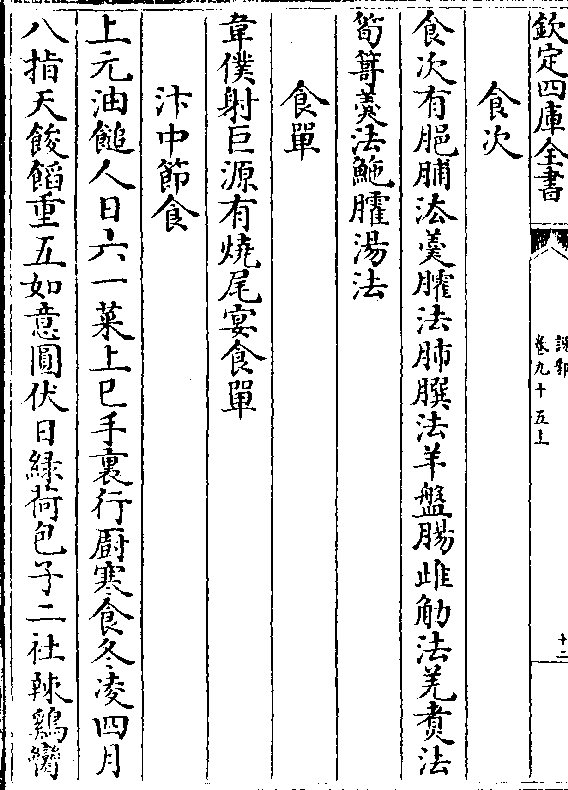 欽定四庫全書
說郛
卷九十五上
十二
食次
食次有脃脯法羹臛法肺膶法羊盤腸雌觔法羌煮法
筍䈚羹法鮑臛湯法
食單
韋僕射巨源有燒尾宴食單
汴中節食
上元油䭔人日六一菜上巳手裏行厨寒食冬凌四月
八指天餕餡重五如意圓伏日緑荷包子二社辣鷄臠